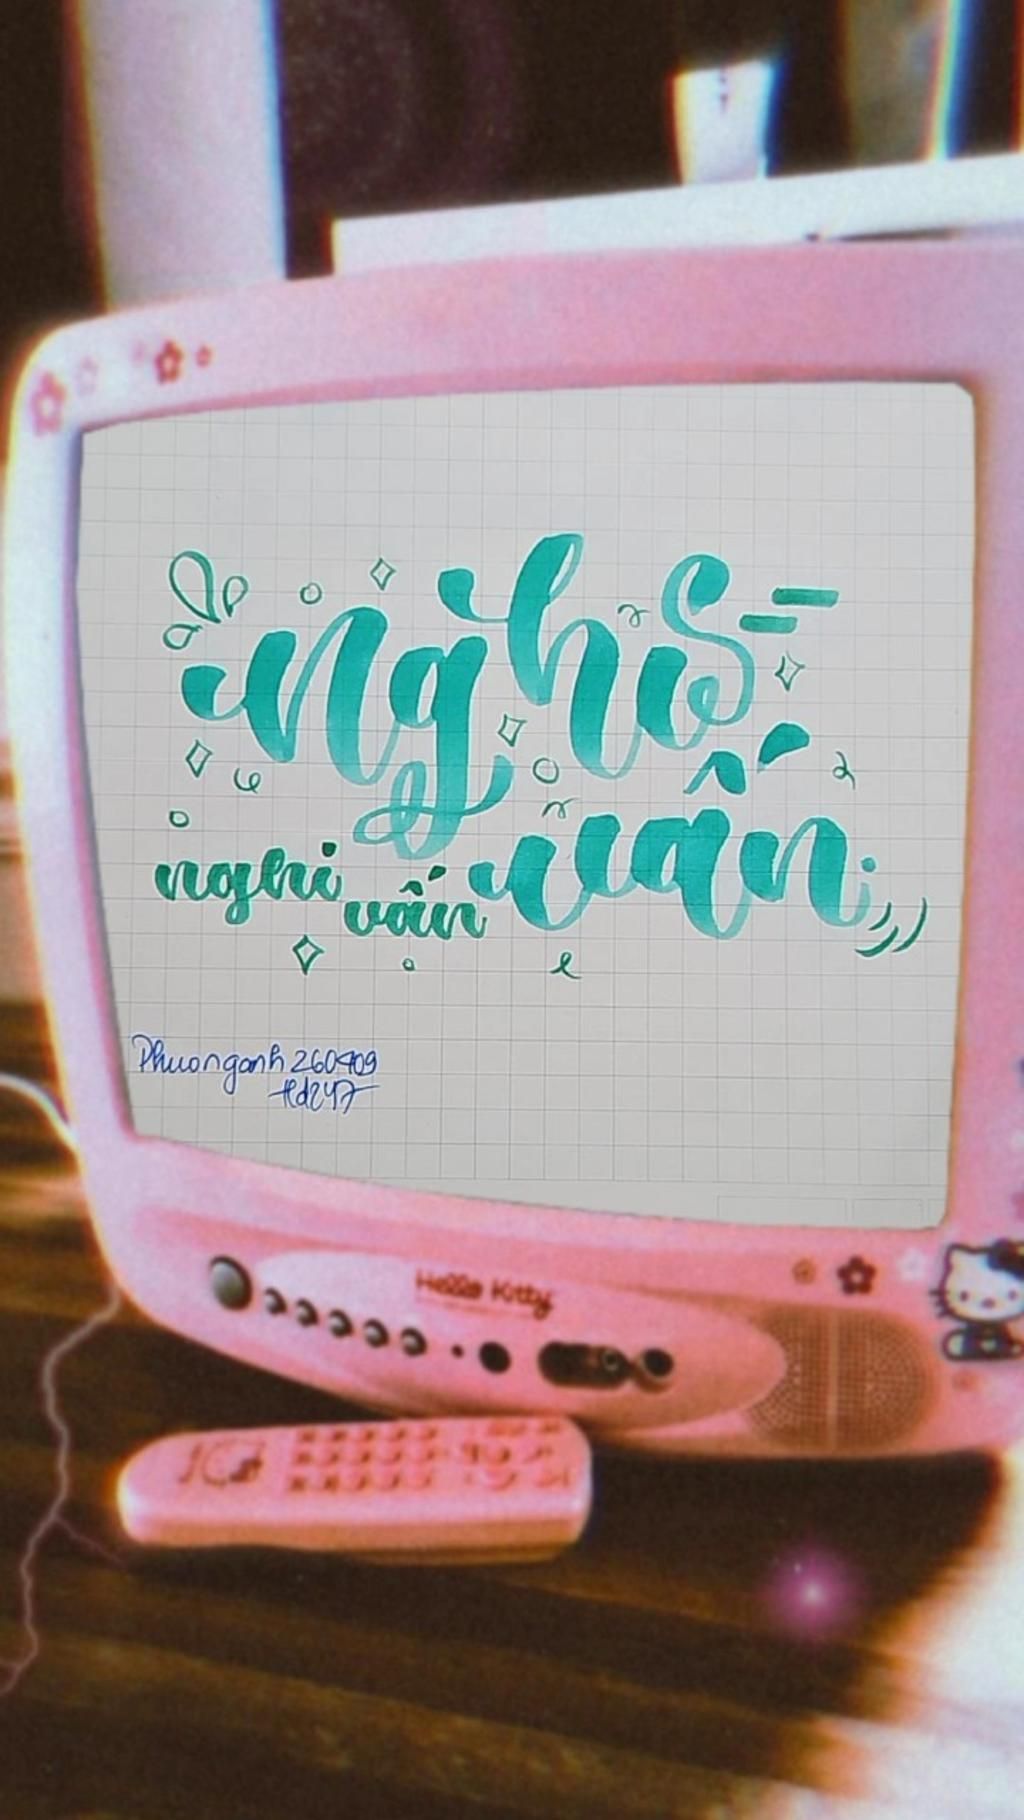 nghi
vấn
nghi
vấn
Phuonganh260409
Hd247
Hello Kitty